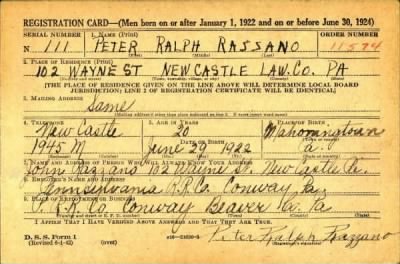 REGISTRATION CARD—(Men born on or after January 1, 1922 and on or before June 30, 1924)
SERIAL NUMBER 1. NAME (Print) ORDER NUMBER
N 111 PETER RALPH RASSANO 11574
2. PLACE OF RESIDENCE (Print)
102 WAYNE ST NEW CASTLE LAW. CO. PA
[THE PLACE OF RESIDENCE GIVEN ON THE LINE ABOVE WILL DETERMINE LOCAL BOARD
JURISDICTION; LINE 2 OF REGISTRATION CERTIFICATE WILL BE IDENTICAL]
3. MAILING ADDRESS
Same
4. TELEPHONE 5. AGE IN YEARS 6. PLACE OF BIRTH
New Castle 20 Mahoningtown
1945 M June 29 1922 Pa.
7. NAME AND ADDRESS OF PERSON WHO WILL ALWAYS KNOW YOUR ADDRESS
John Razzano 102 Wayne St. New Castle Pa.
8. EMPLOYER'S NAME AND ADDRESS
Pennsylvania R.R. Co. Conway Pa.
9. PLACE OF EMPLOYMENT OR BUSINESS
P. R. R. Co. Conway Beaver Co. Pa
I AFFIRM THAT I HAVE VERIFIED ABOVE ANSWERS AND THAT THEY ARE TRUE.
D. S. S. Form 1
(Revised 6-1-42) (over)
Peter Ralph Razzano